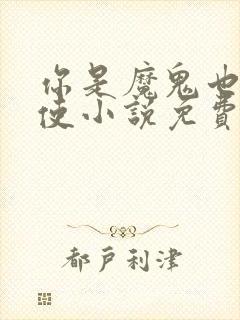 你是魔鬼也
使小說免費
都戶利津